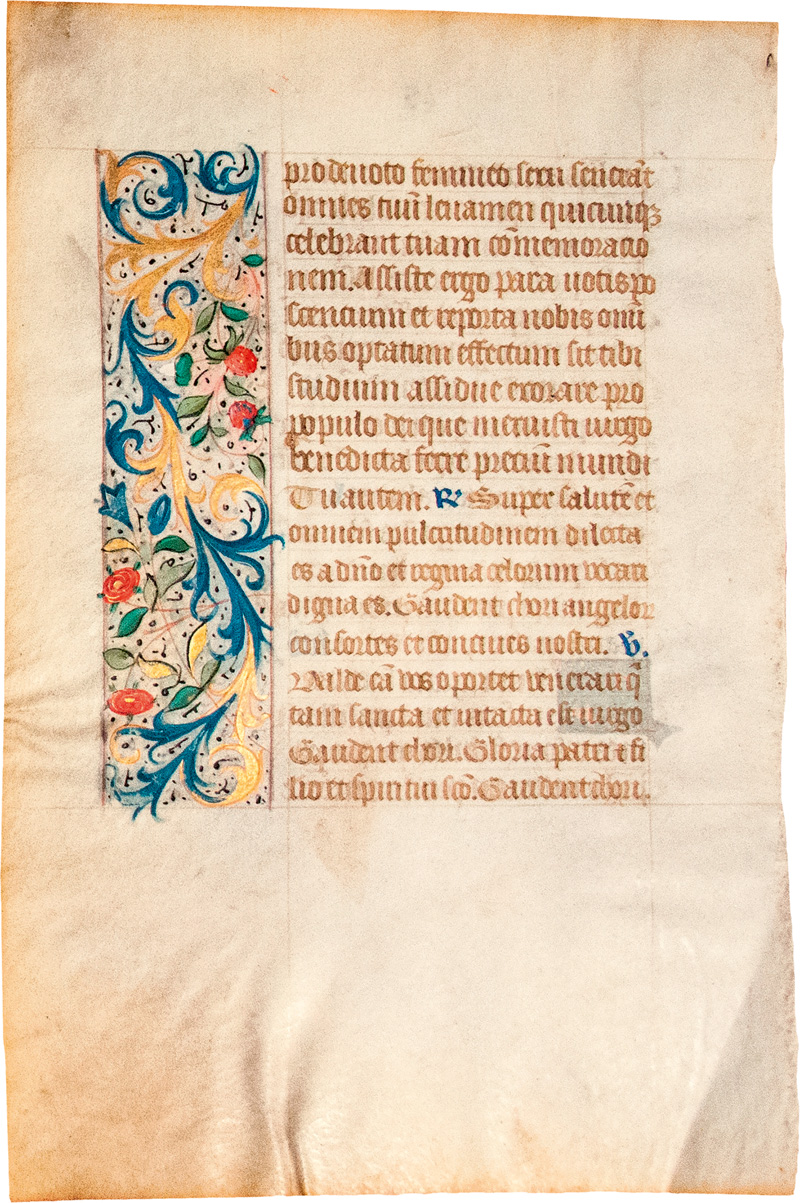 pro deuoto femineo sexu senciāt
omnes tuū leuamen quicunqꝫ
celebrant tuam cōmemoracio
nem. Assiste ergo para uotis po
scencium et reporta nobis omī
bus optatum effectum sit tibi
studium assidue exorare pro
populo dei que meruisti uirgo
benedicta ferre preciū mundi
Tu autem. R̸ Super salutē et
omnem pulcritudinem dilecta
es a dn̄o et regina celorum vocari
digna es. Gaudent chori angelor
consortes et conciues nostri. V̸.
Valde eā vos oportet venerari q̄
tam sancta et intacta est uirgo
Gaudent chori. Gloria patri ⁊ fi
lio et spiritui scō. Gaudent chori.